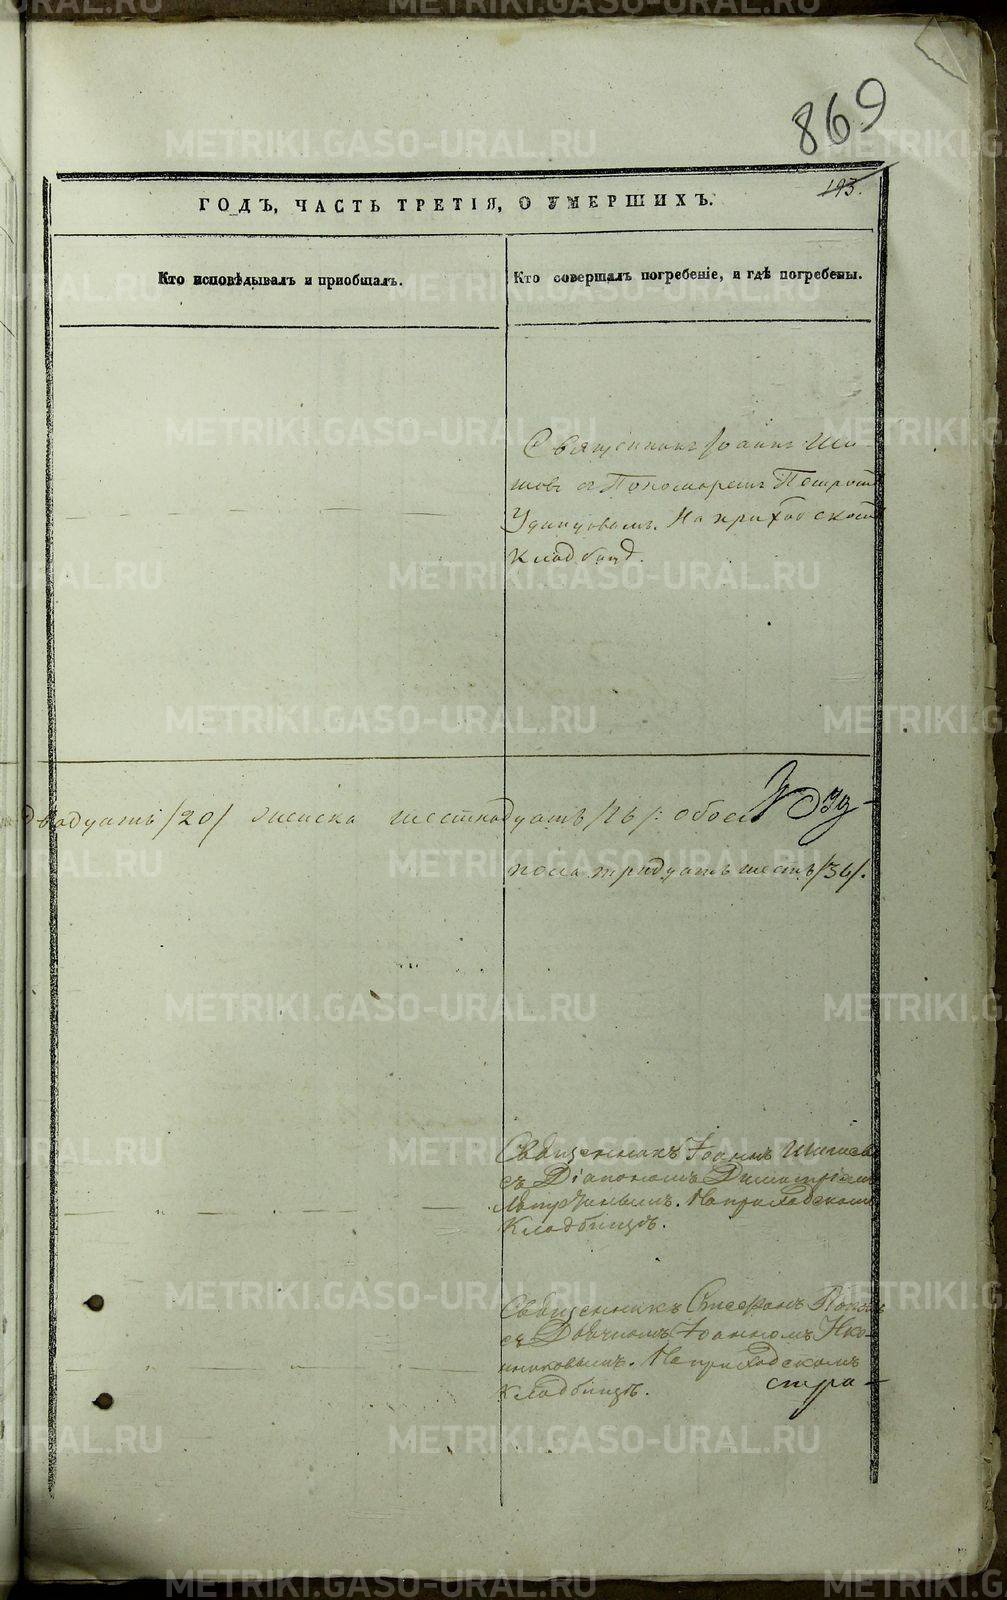 869
193.
ГОДЪ, ЧАСТЬ ТРЕТІЯ, О УМЕРШИХЪ.
Кто исповѣдывалъ и приобщалъ.
Кто совершалъ погребеніе, и гдѣ погребены.
Священникъ Іоаннъ Ши-
шовъ съ Пономаремъ Петромъ
Удинцовымъ. На приходскомъ
Кладбищѣ.
двадцать /20/ женска шестнадцать /16/: обоего
пола тридцать шесть /36/.
Священникъ Іоаннъ Шишевъ
съ Діакономъ Димитріемъ
На приходскомъ
Кладбищѣ.
Священникъ Стефанъ Поповъ
съ Дьячкомъ Іоанномъ Ико-
нниковымъ. На приходскомъ
Кладбищѣ. стра-
METRIKI.GASO-URAL.RU